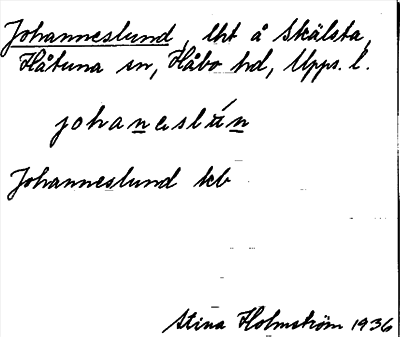 Johanneslund, lht å Skälsta,
Håtuna sn, Håbo hd, Upps. l.
johaneslún
Johanneslund kb
Stina Holmström 1936